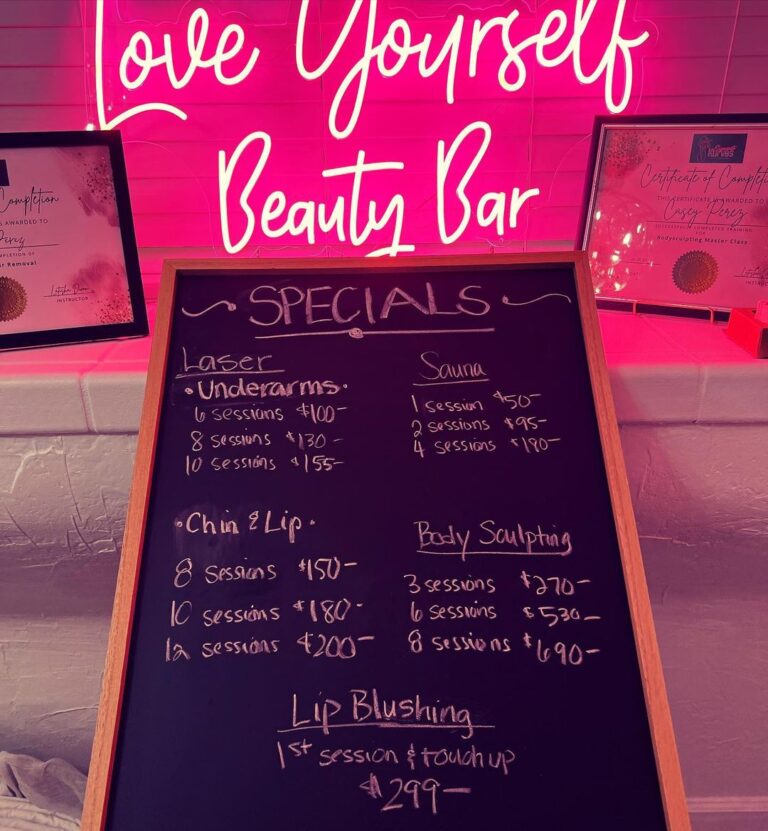 Love Yourself
Beauty Bar
Completion
S AWARDED TO
Perez
MPLETION OF
r Removal
INSTRUCTOR
Certificate of Completion
THIS CERTIFICATE IS AWARDED TO
Casey Perez
Bodysculpting Master Class
SPECIALS
Laser
•Underarms•
6 sessions $100-
8 sessions $130-
10 sessions $155-
•Chin & Lip•
8 sessions $150-
10 sessions $180-
12 sessions $200-
Sauna
1 session $50-
2 sessions $95-
4 sessions $190-
Body Sculpting
3 sessions $270-
6 sessions $530-
8 sessions $690-
Lip Blushing
1st session & touch up
$299-